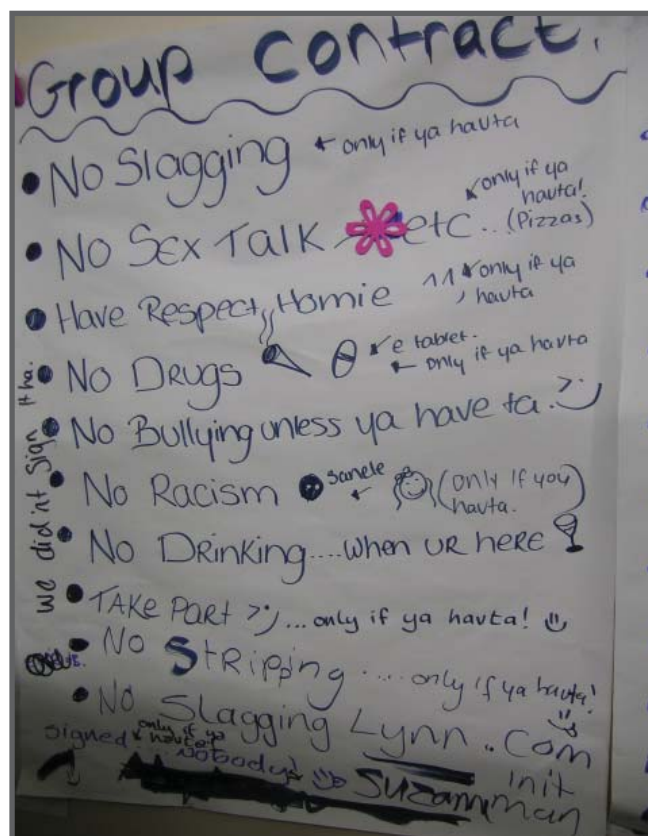 Group Contract.
No Slagging only if ya havta
No Sex Talk etc.. (Pizzas) only if ya havta!
Have Respect, Homie only if ya havta
No Drugs e tablet. only if ya havta
No Bullying unless ya have ta.
No Racism sanele (only if you havta.)
No Drinking....when ur here
Take Part ...only if ya havta!
No Stripping ....only if ya havta!
No Slagging Lynn..com
init
man
signed nobody! only if ya havta
we did'nt sign it ha.